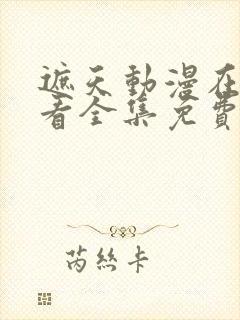 遮天動漫在
看全集免費
芮絲卡